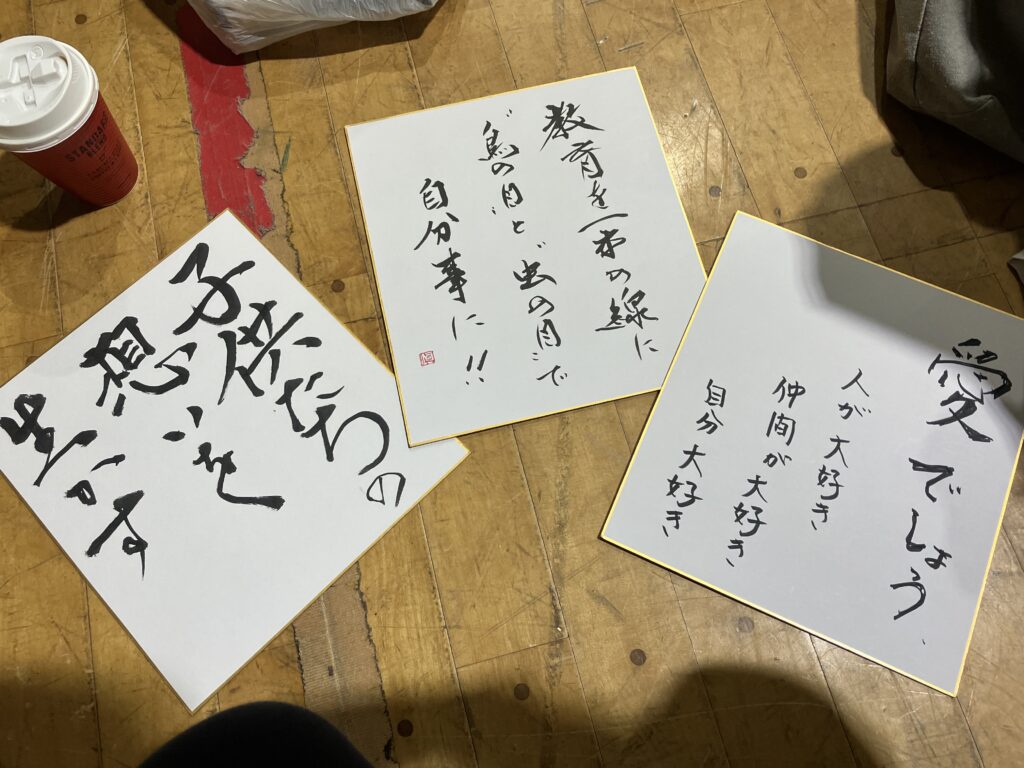 子供たちの
想いを
生かす
教育を一本の線に
〝鳥の目〟と〝虫の目〟で
自分事に!!
愛でしょう、
人が大好き
仲間が大好き
自分大好き
STANDARD